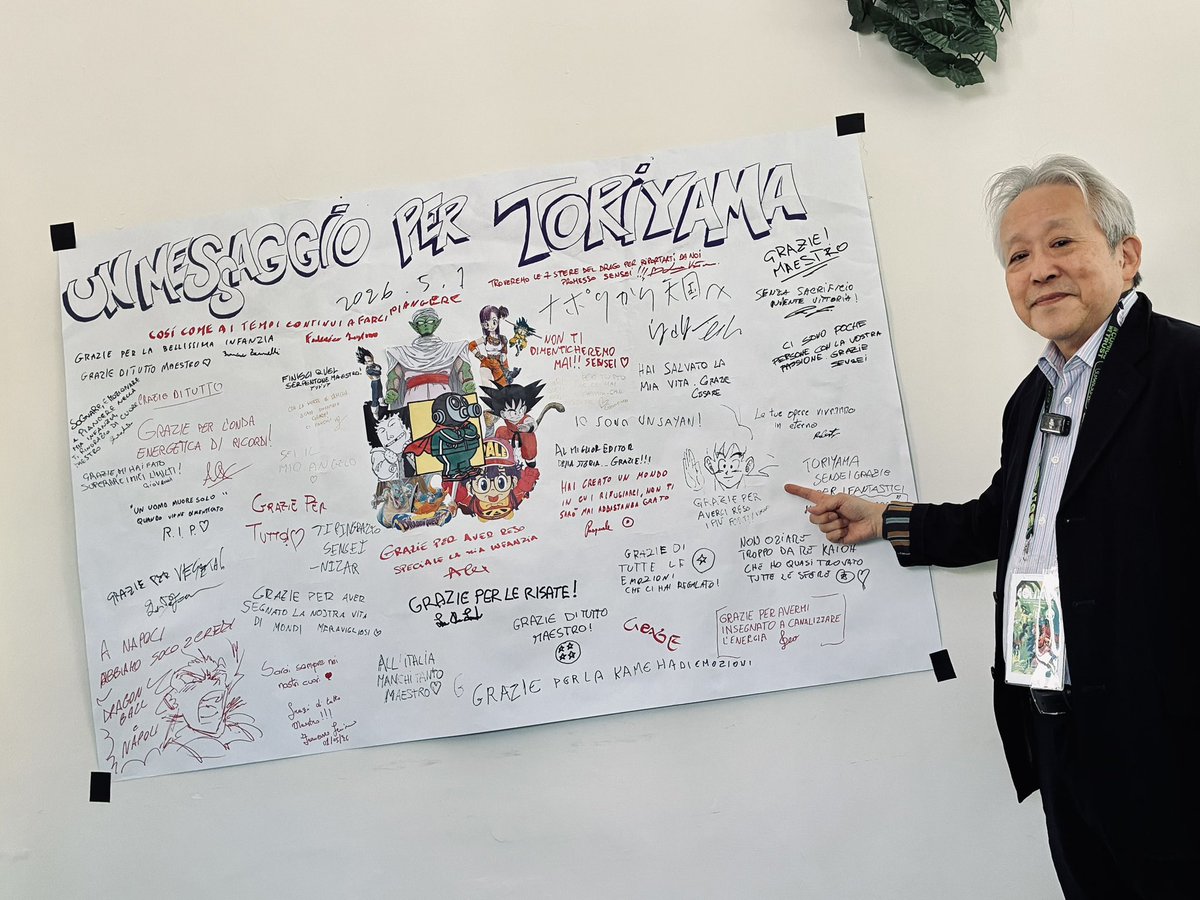 UN MESSAGGIO PER TORIYAMA
2026.5.1
TROVEREMO LE 7 SFERE DEL DRAGO PER RIPORTARTI DA NOI
PROMESSO SENSEI !!!
GRAZIE!
MAESTRO
COSÍ COME AI TEMPI CONTINUI A FARCI PIANGERE
GRAZIE PER LA BELLISSIMA INFANZIA
GRAZIE DI TUTTO MAESTRO ♡
ナポリから天国へ
SENZA SACRIFICIO
VITTORIA!
CI SONO POCHE
PERSONE CON LA VOSTRA
PASSIONE GRAZIE
SENSEI
NON TI
DIMENTICHEREMO
MAI!! SENSEI ♡
HAI SALVATO LA
MIA VITA. GRAZIE
CESARE
FINISCI QUEL
SERPENTONE MAESTRO!
GRAZIE DI TUTTO
GRAZIE PER L'ONDA
ENERGETICA DI RICORDI!
Alex
SEI IL
MIO ANGELO
IO SONO UN SAYAN!
Le tue opere vivranno
in eterno
AL MIGLIOR EDITOR
DELLA STORIA.. GRAZIE!!!
HAI CREATO UN MONDO
IN CUI RIFUGIARCI, NON TI
SARÒ MAI ABBASTANZA GRATO
Pasquale
GRAZIE, MI HAI FATO
SUPERARE I MIEI LIMITI!
Giovanni
"UN UOMO MUORE SOLO
QUANDO VIENE DIMENTICATO"
R.I.P ♡
GRAZIE PER
TUTTO! ♡
TI RINGRAZIO
SENSEI
-NIZAR
GRAZIE PER
AVERCI RESO
I PIÙ FORTI!
TORIYAMA
SENSEI GRAZIE
PER I FANTASTICI
GRAZIE PER AVER RESO
SPECIALE LA MIA INFANZIA
Alex
GRAZIE DI
TUTTE LE
EMOZIONI
CHE CI HAI REGALATO!
NON OZIARE
TROPPO DA RE KAIOH
CHE HO QUASI TROVATO
TUTTE LE SFERE
GRAZIE PER VEGETA!
GRAZIE PER AVER
SEGNATO LA NOSTRA VITA
DI MONDI MERAVIGLIOSI ♡
GRAZIE PER LE RISATE!
GRAZIE DI TUTTO
MAESTRO!
GRAZIE PER AVERMI
INSEGNATO A CANALIZZARE
L'ENERGIA
A NAPOLI
ABBIAMO SOLO 2 CREDI
DRAGON
BALL
E
NAPOLI
Sarai sempre nei
nostri cuori
Grazie di tutto
Maestro!!!
ALL'ITALIA
MANCHI TANTO
MAESTRO ♡
GRAZIE PER LA KAMEHA DI EMOZIONI